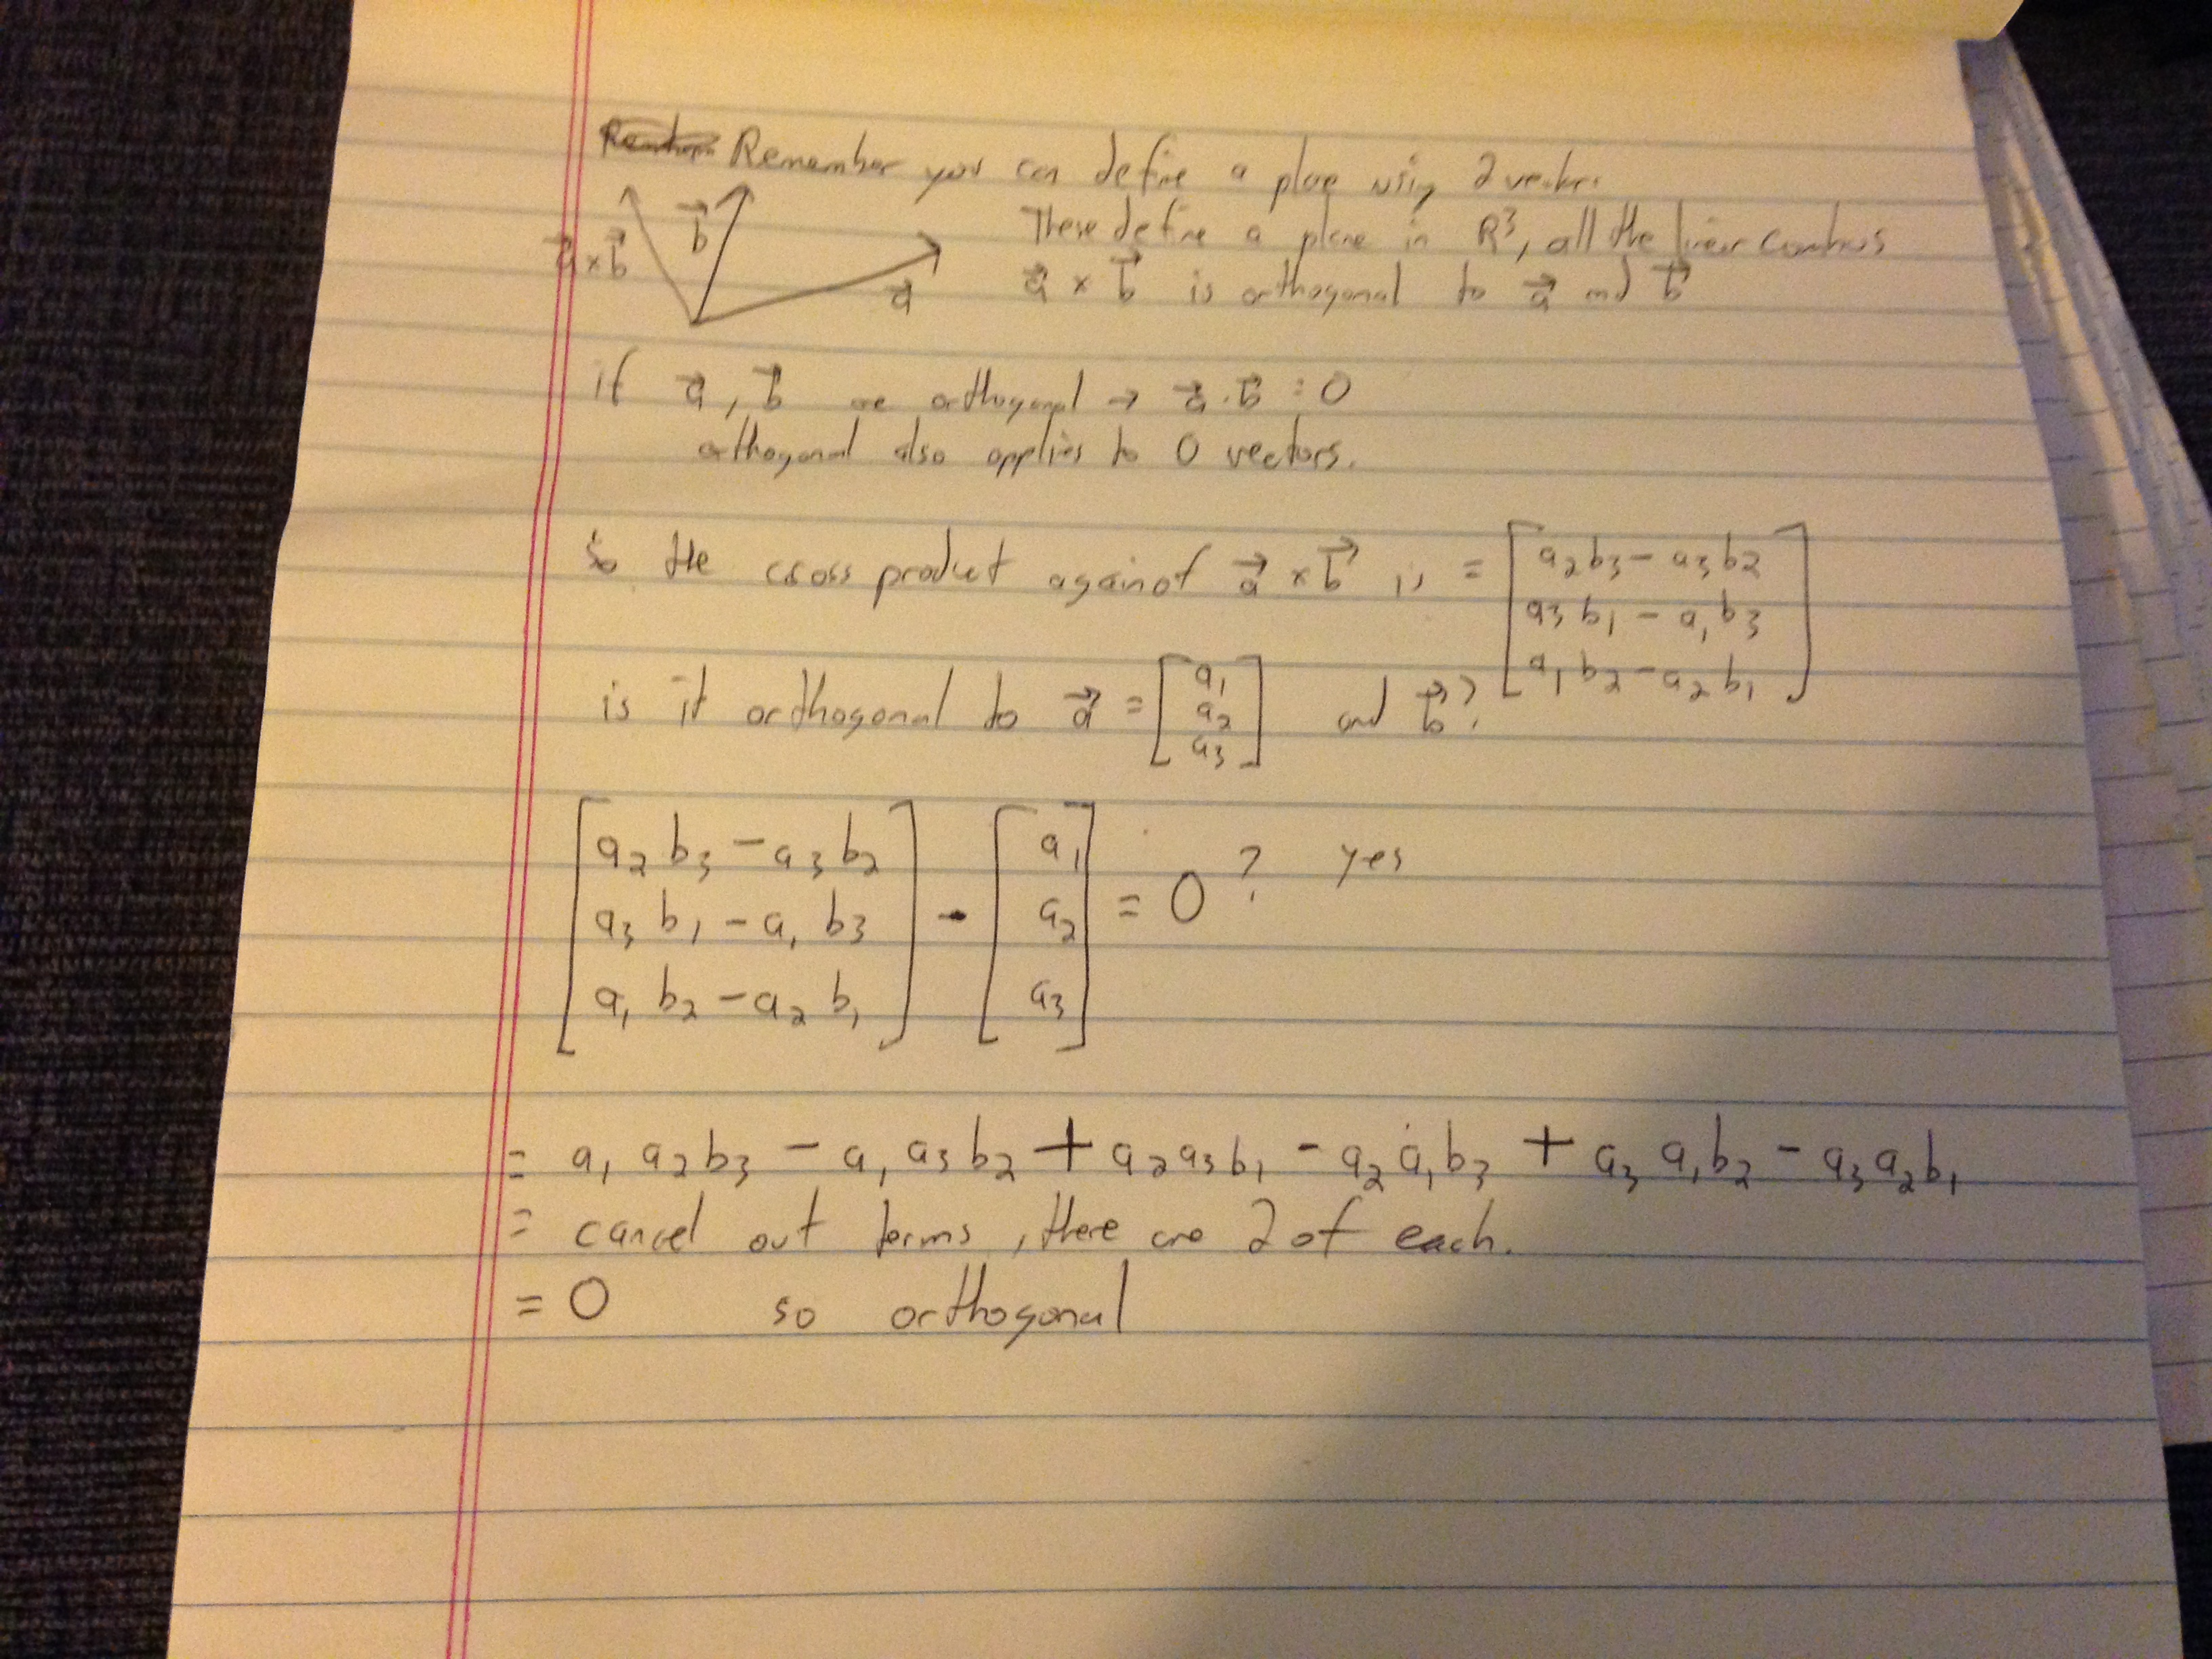 Remember you can define a plane using 2 vectors
These define a plane in R³, all the linear combos
a⃗ x b⃗ b⃗ a⃗ a⃗ x b⃗ is orthogonal to a⃗ and b⃗
if a⃗, b⃗ are orthogonal → a⃗ · b⃗ = 0
orthogonal also applies to 0 vectors.
So the cross product against a⃗ x b⃗ is = [ a₂b₃ - a₃b₂
a₃b₁ - a₁b₃
a₁b₂ - a₂b₁ ]
is it orthogonal to a⃗ = [ a₁ a₂ a₃ ] and b⃗?
[ a₂b₃ - a₃b₂ ] [ a₁ ] ? yes
[ a₃b₁ - a₁b₃ ] · [ a₂ ] = 0
[ a₁b₂ - a₂b₁ ] [ a₃ ]
= a₁a₂b₃ - a₁a₃b₂ + a₂a₃b₁ - a₂a₁b₃ + a₃a₁b₂ - a₃a₂b₁
= cancel out terms, there are 2 of each.
= 0 so orthogonal